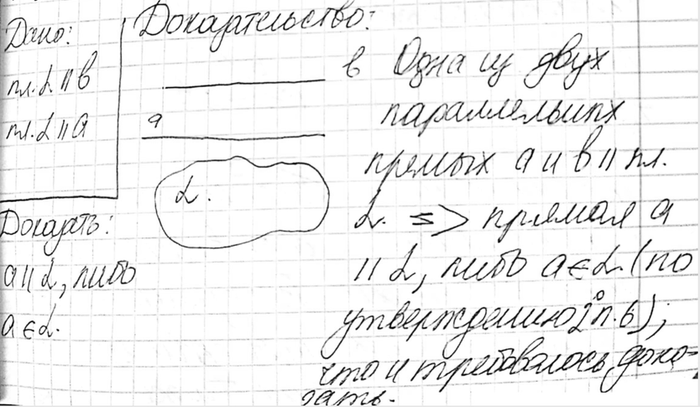 Дано:
пл. α || в
пл. α || а
Доказать:
а || α, либо
а ∈ α.
Доказательство:
в
а
α.
Одна из двух
параллельных
прямых а и в || пл.
α. => прямая а
|| α, либо а ∈ α. (по
утверждению 2° п. 6);
что и требовалось дока-
зать.